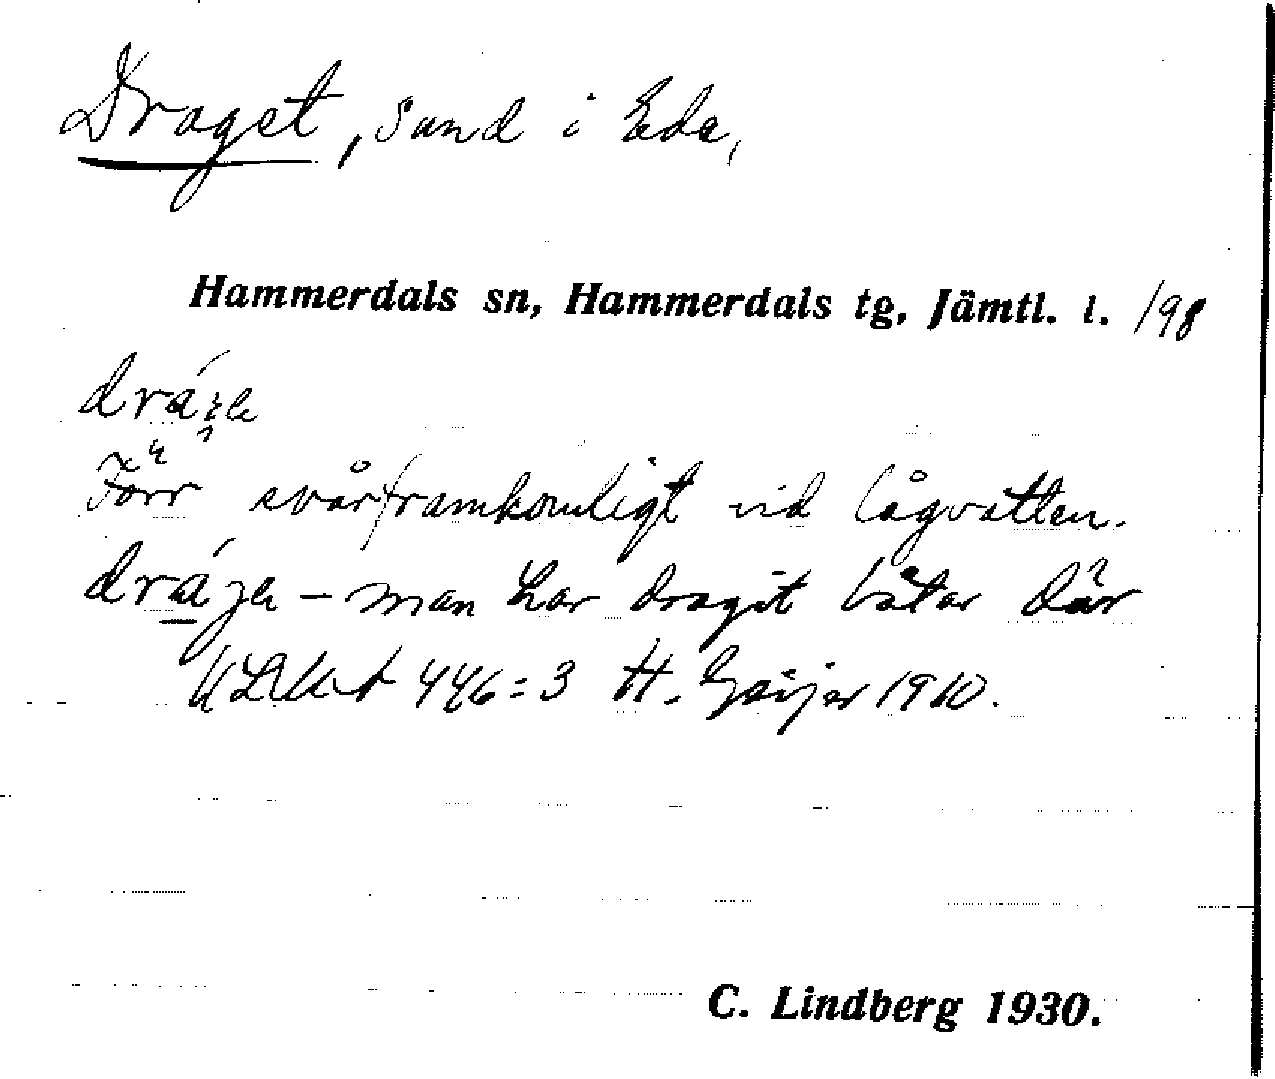 Draget, sund i Ede,
Hammerdals sn, Hammerdals tg, Jämtl. l. /98
Förr svårframkomligt vid lågvatten.
– man har dragit båtar där
446:3 H. Geijer 1910.
C. Lindberg 1930.